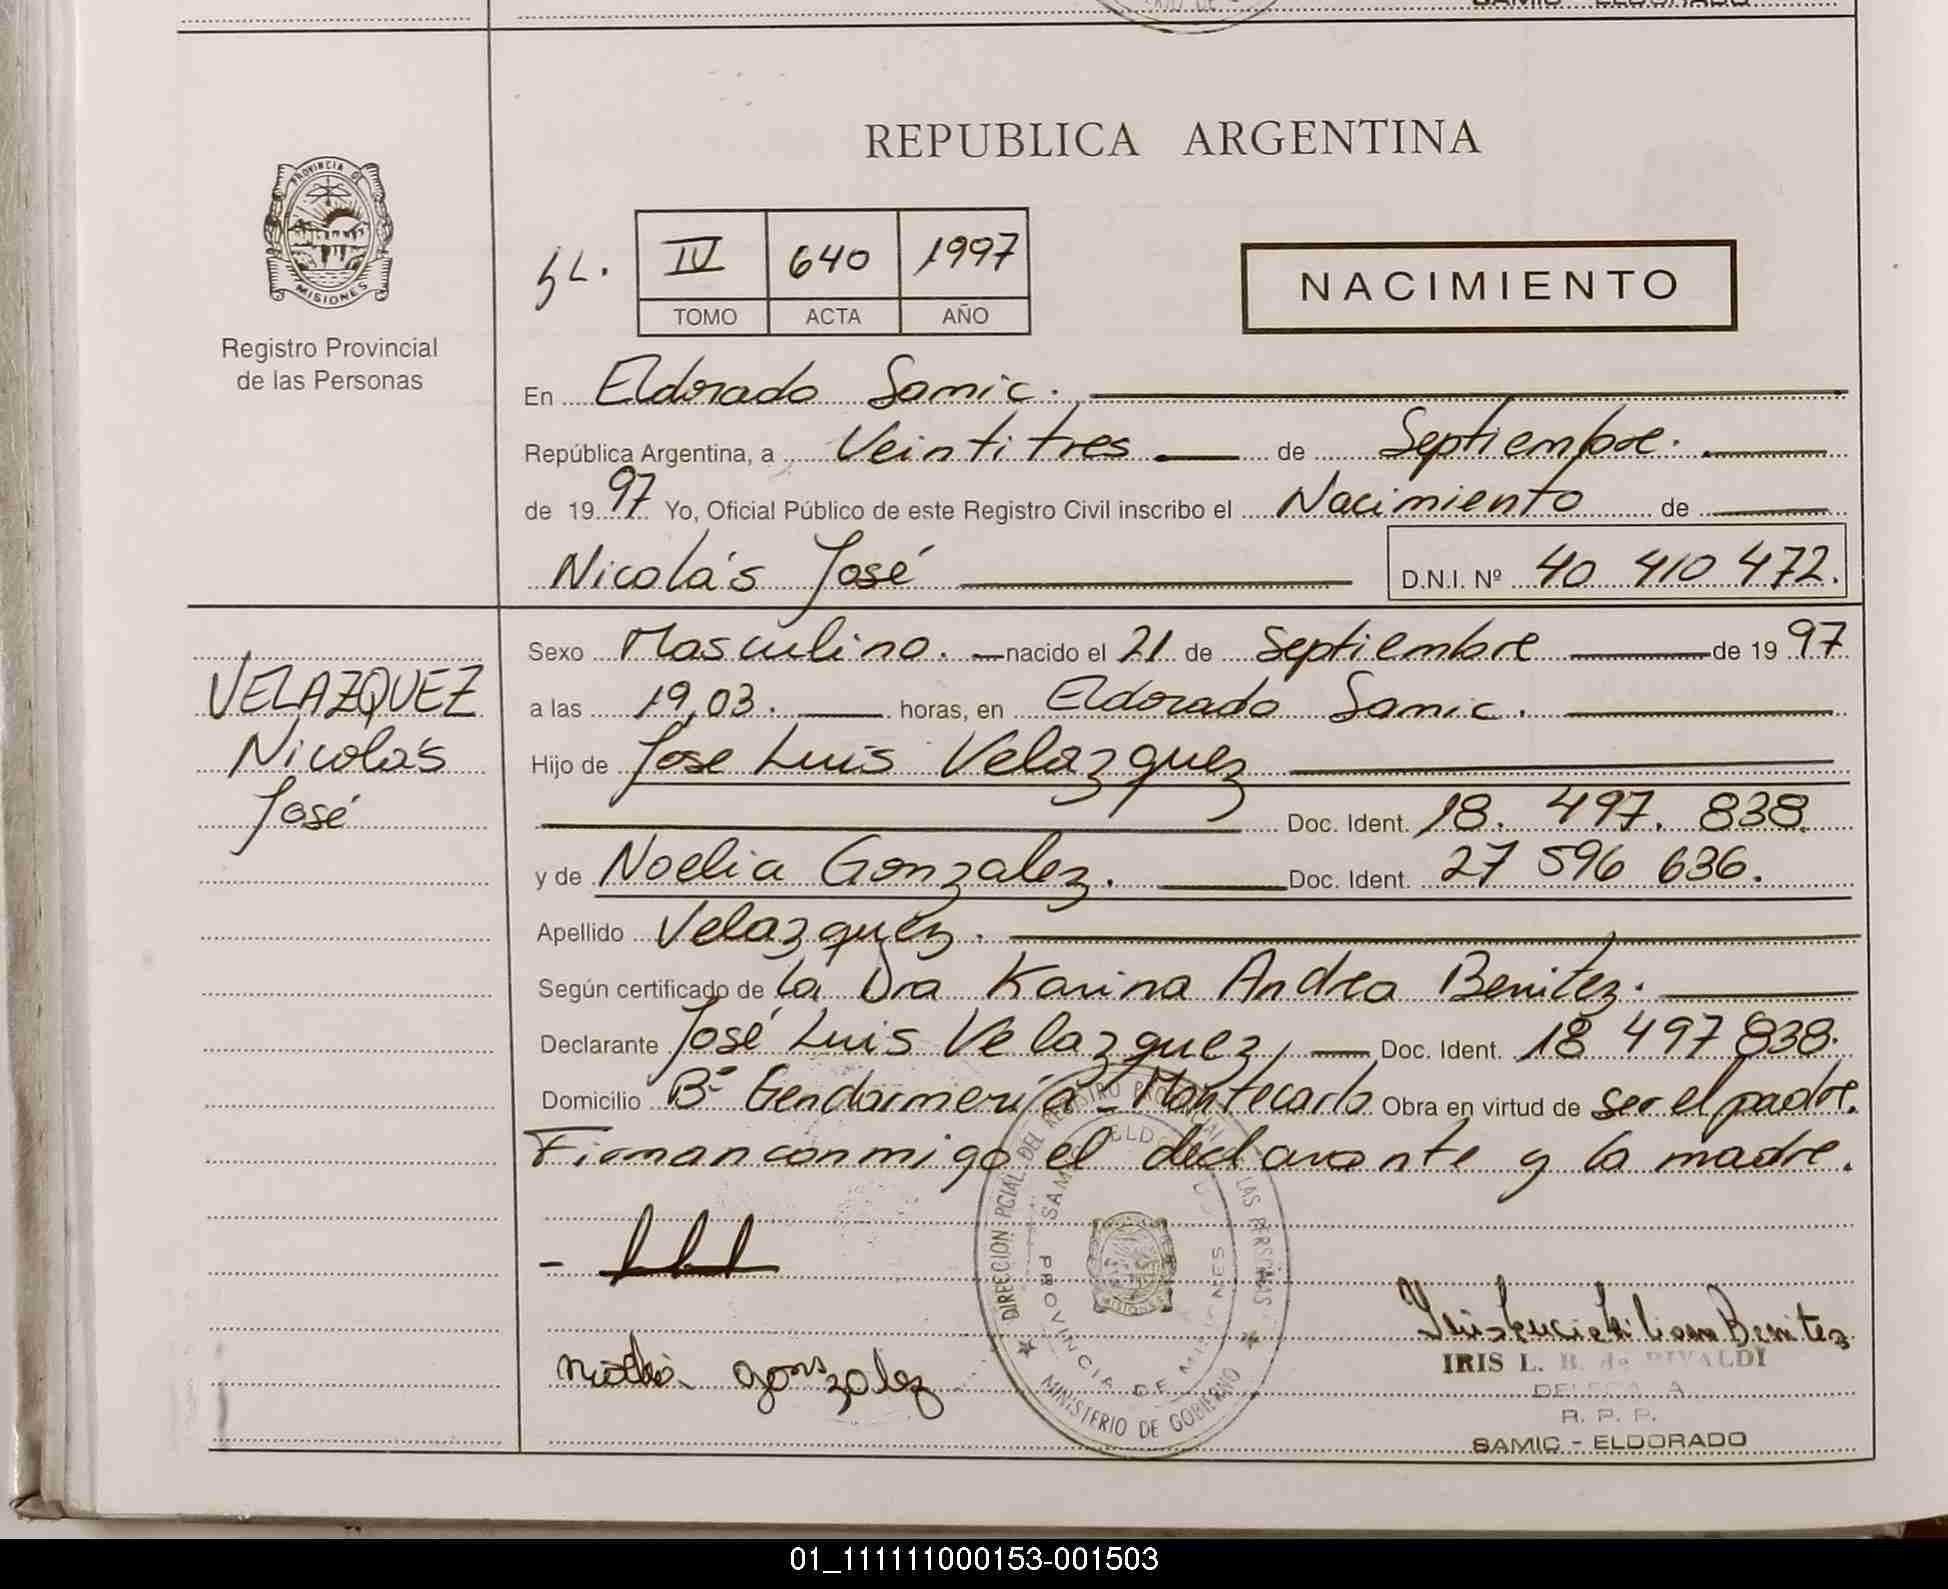 SAMIC - ELDORADO
REPUBLICA ARGENTINA
PROVINCIA DE
MISIONES
Registro Provincial
de las Personas
IV 640 1997
TOMO ACTA AÑO
NACIMIENTO
En Eldorado Samic.
República Argentina, a Veintitres de Septiembre.
de 1997 Yo, Oficial Público de este Registro Civil inscribo el Nacimiento de
Nicolás José D.N.I. Nº 40 410 472.
VELAZQUEZ
Nicolás
José
Sexo Masculino. nacido el 21 de Septiembre de 1997
a las 19,03. horas, en Eldorado Samic.
Hijo de Jose Luis Velazquez
Doc. Ident. 18. 497. 838.
y de Noelia Gonzalez. Doc. Ident. 27 596 636.
Apellido Velazquez.
Según certificado de la Dra Karina Andrea Benitez.
Declarante José Luis Velazquez, Doc. Ident. 18 497 838.
Domicilio Bº Gendarmería - Montecarlo Obra en virtud de ser el padre.
Firman conmigo el declarante y la madre.
DIRECCION PCIAL DEL REGISTRO PROVINCIAL DE LAS PERSONAS
SAMIC ELDORADO
PROVINCIA DE MISIONES
MISIONES
MINISTERIO DE GOBIERNO
gonzalez
Benitez
IRIS L. B. de RIVALDI
DELEGADA
R. P. P.
SAMIC - ELDORADO
01_111111000153-001503